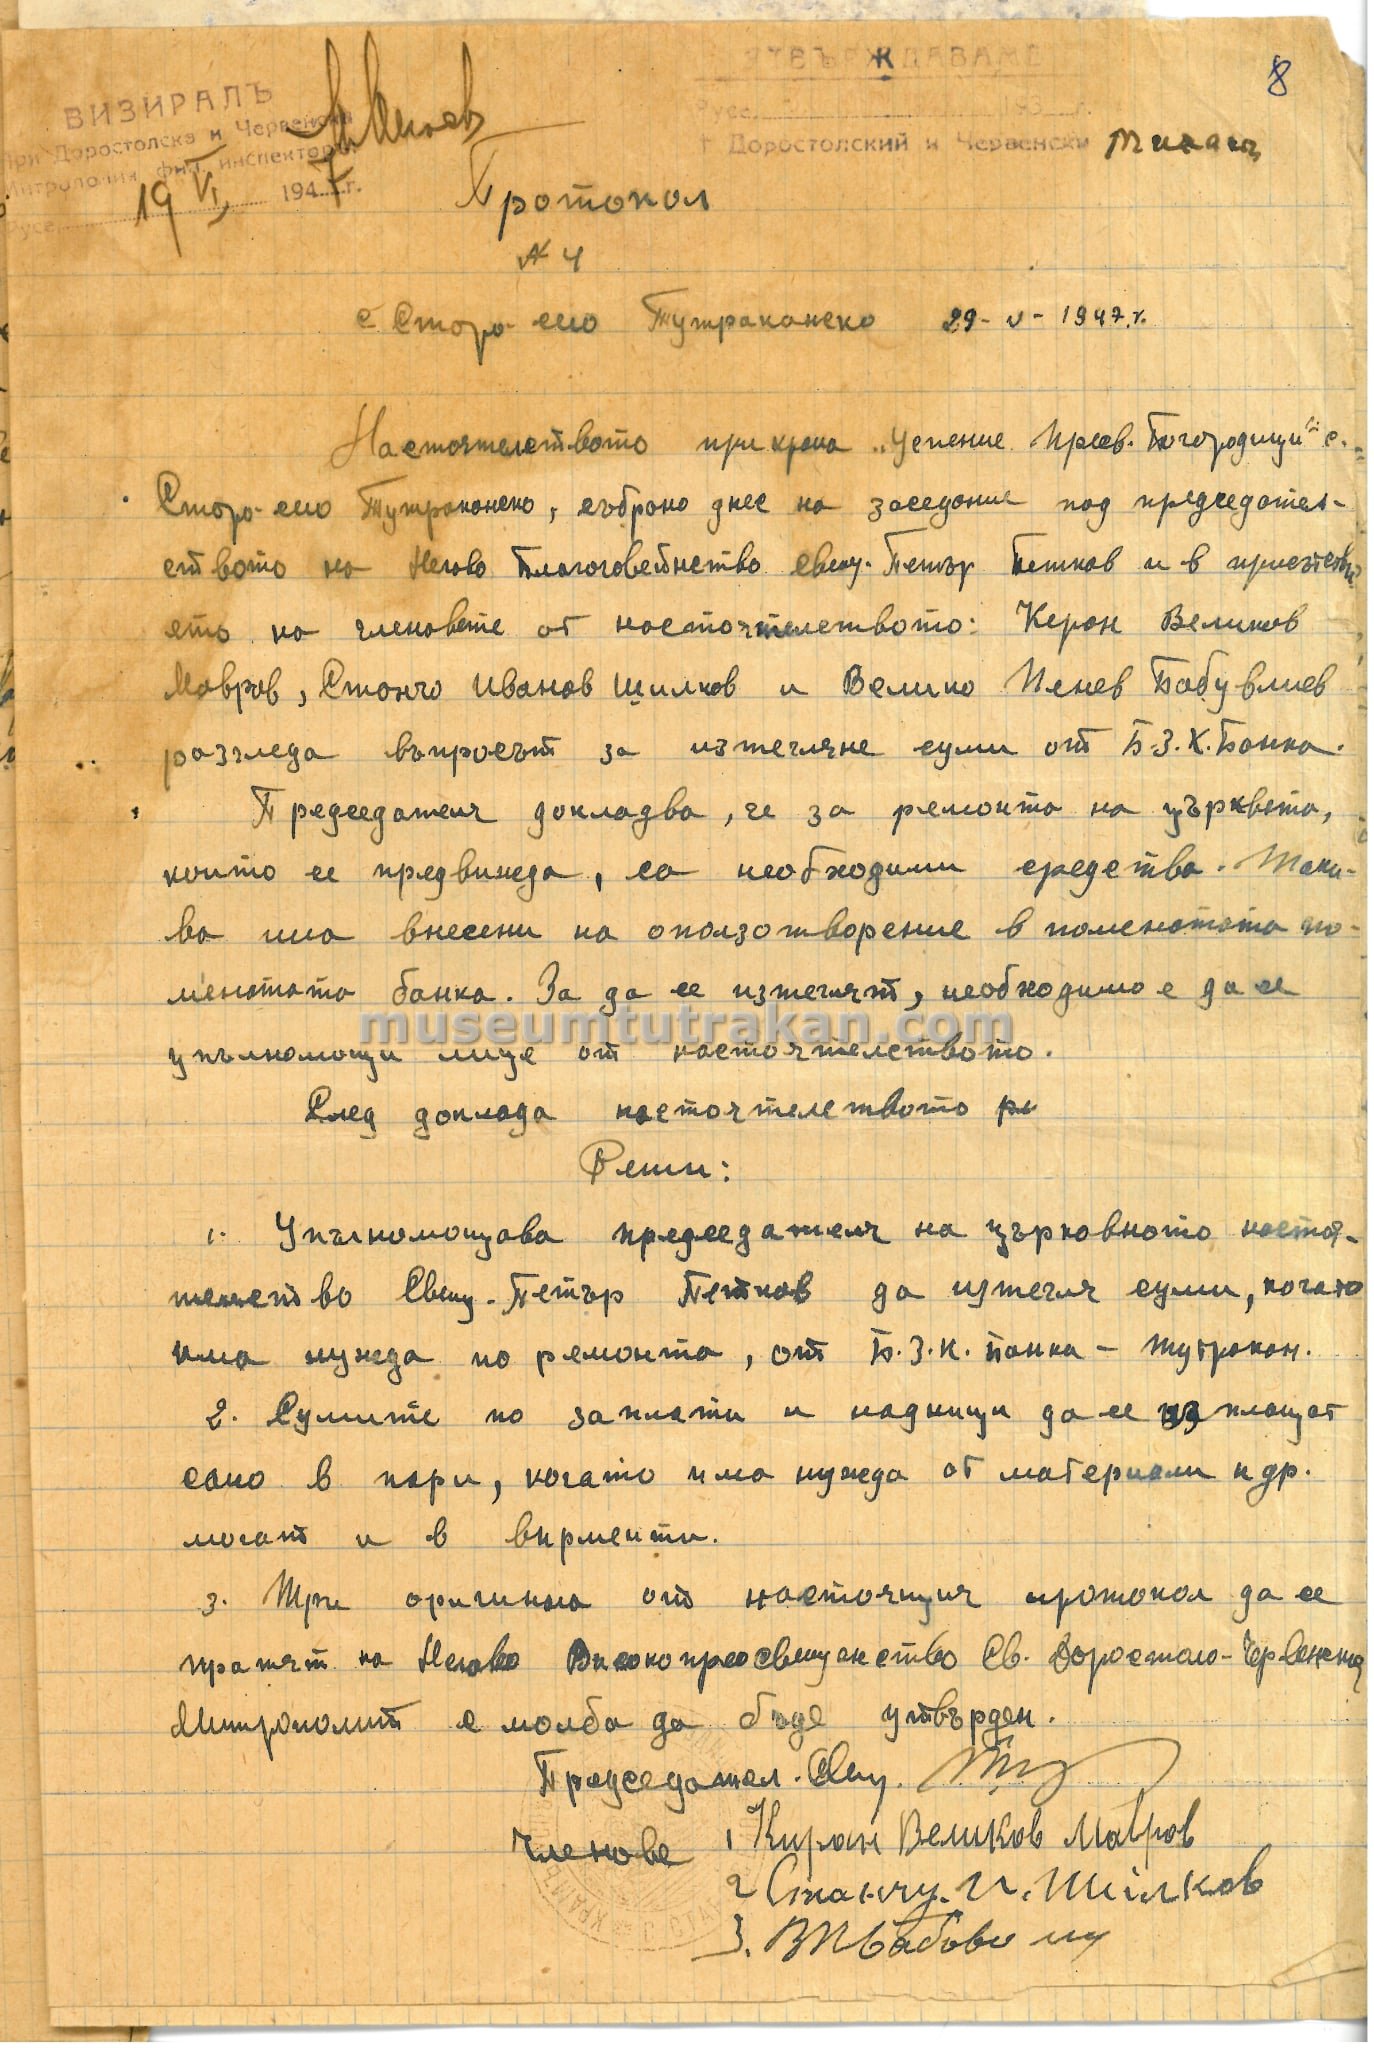 8
ВИЗИРАЛЪ
При Доростолска и Червенска
Митрополия фин. инспекторъ
Русе, 19 VI, 1947 г.
УТВЪРЖДАВАМЪ
Русе, 193 г.
† Доростолский и Червенски Михаил
Протокол
№ 4
с. Старо-село Тутраканско 29-V-1947 г.
Настоятелството при храма „Успение Пресв. Богородици" с.
Старо-село Тутраканско, събрано днес на заседание под председател-
ството на Негово Благоговейнство свещ. Петър Петков и в присътстви
ето на членовете от настоятелството: Керан Великов
Мавров, Станчо Иванов Шилков и Велико Пенев Бабувлиев
разгледа въпросът за изтегляне суми от Б.З.К. Банка.
Председателя докладва, че за ремонта на църквата,
който се предвижда, са необходими средства. Таки-
ва има внесени на оползотворение в поменатата по-
менатата банка. За да се изтеглят, необходимо е да се
museumtutrakan.com
упълномощи лице от настоятелството.
След доклада настоятелството ре
Реши:
1. Упълномощава председателя на църковното настоя-
телство Свещ. Петър Петков да изтегля суми, когато
има нужда по ремонта, от Б.З.К. банка – Тутракан.
2. Сумите по заплати и надници да се изплащат
само в пари, когато има нужда от материали и др.
могат и в вирменти.
3. Три оригинала от настоящия протокол да се
пратят на Негово Високопреосвещенство Св. Доростоло-Червенский
Митрополит с молба да бъде утвърден.
Председател. Свещ.
Членове 1 Киран Великов Мавров
2 Станчу. И. Шилков
3. ВПБабови